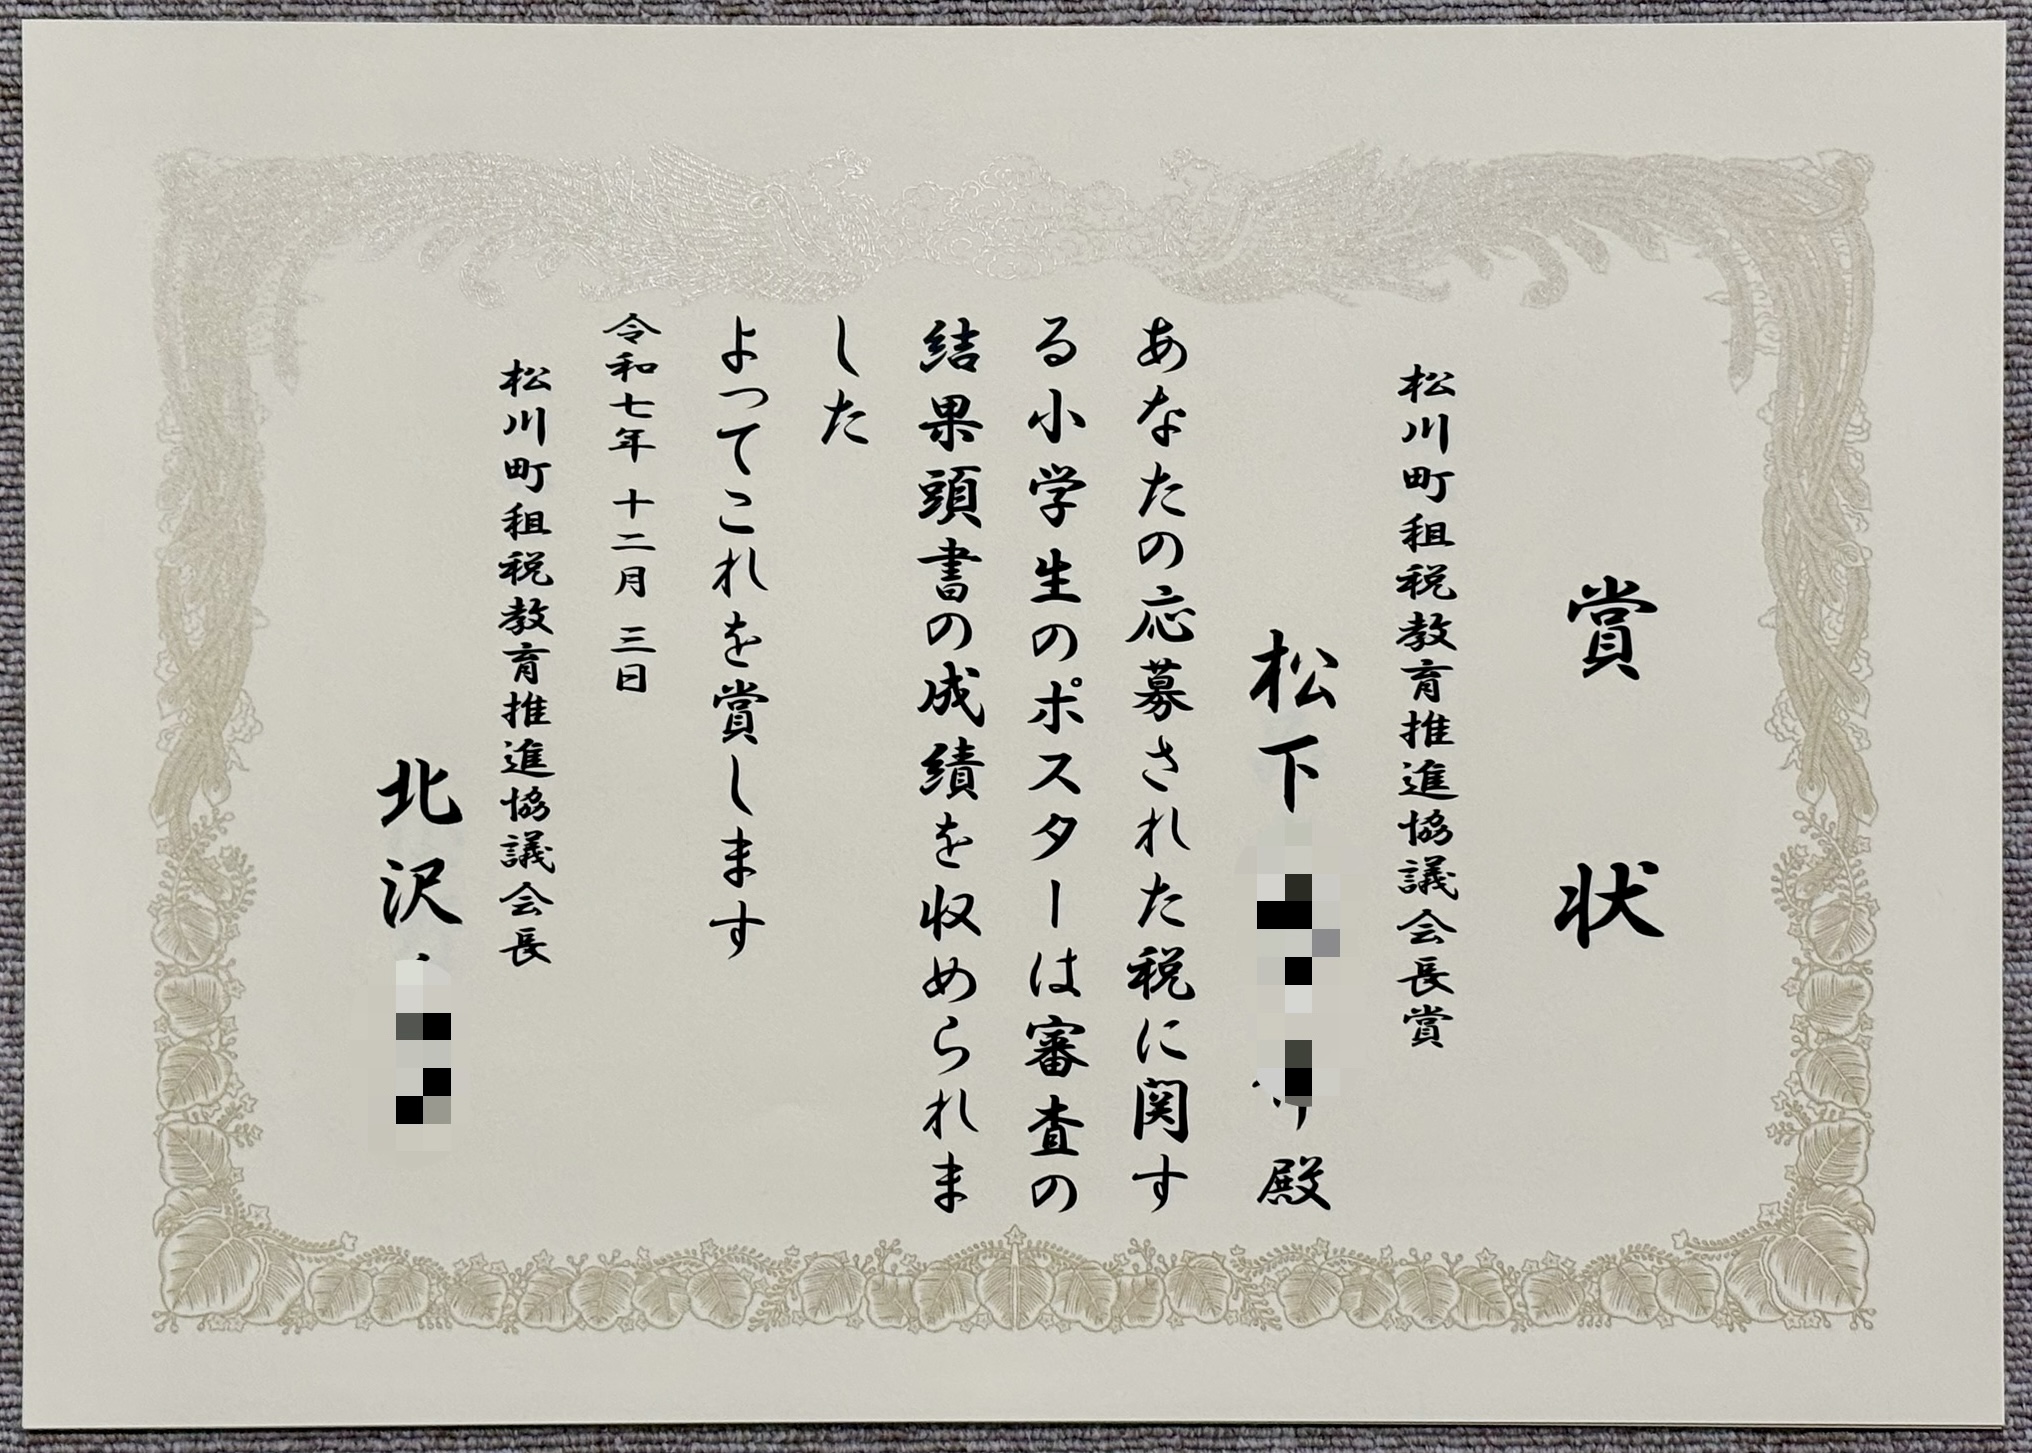 賞状
松川町租税教育推進協議会長賞
松下 殿
あなたの応募された税に関す
る小学生のポスターは審査の
結果頭書の成績を収められま
した
よってこれを賞します
令和七年 十二月 三日
松川町租税教育推進協議会長
北沢